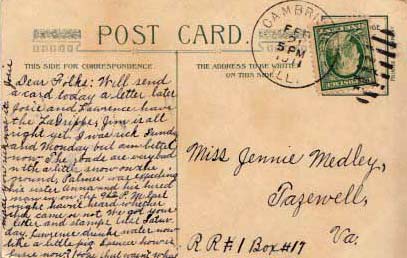 POST CARD.
THIS SIDE FOR CORRESPONDENCE.
THE ADDRESS TO BE WRITTEN
ON THIS SIDE.
CAMBRI
FEB
5 PM
1911
ILL.
Dear Folks: Will send
a card today a letter later
Josie and Lawrence have
the LaGrippe, Jim is all
right yet. I was sick Sunday
and Monday but am better
now. The roads are very bad
with a little snow on the
ground. Palmer was expecting
his sister Anna and his hired
man
night haven't heard whether
they came or not. We got your
letter and stamps last Satur-
day. Lawrence drinks water now
like a little pig
Miss Jennie Medley,
Tazewell,
Va.
R R #1 Box #17